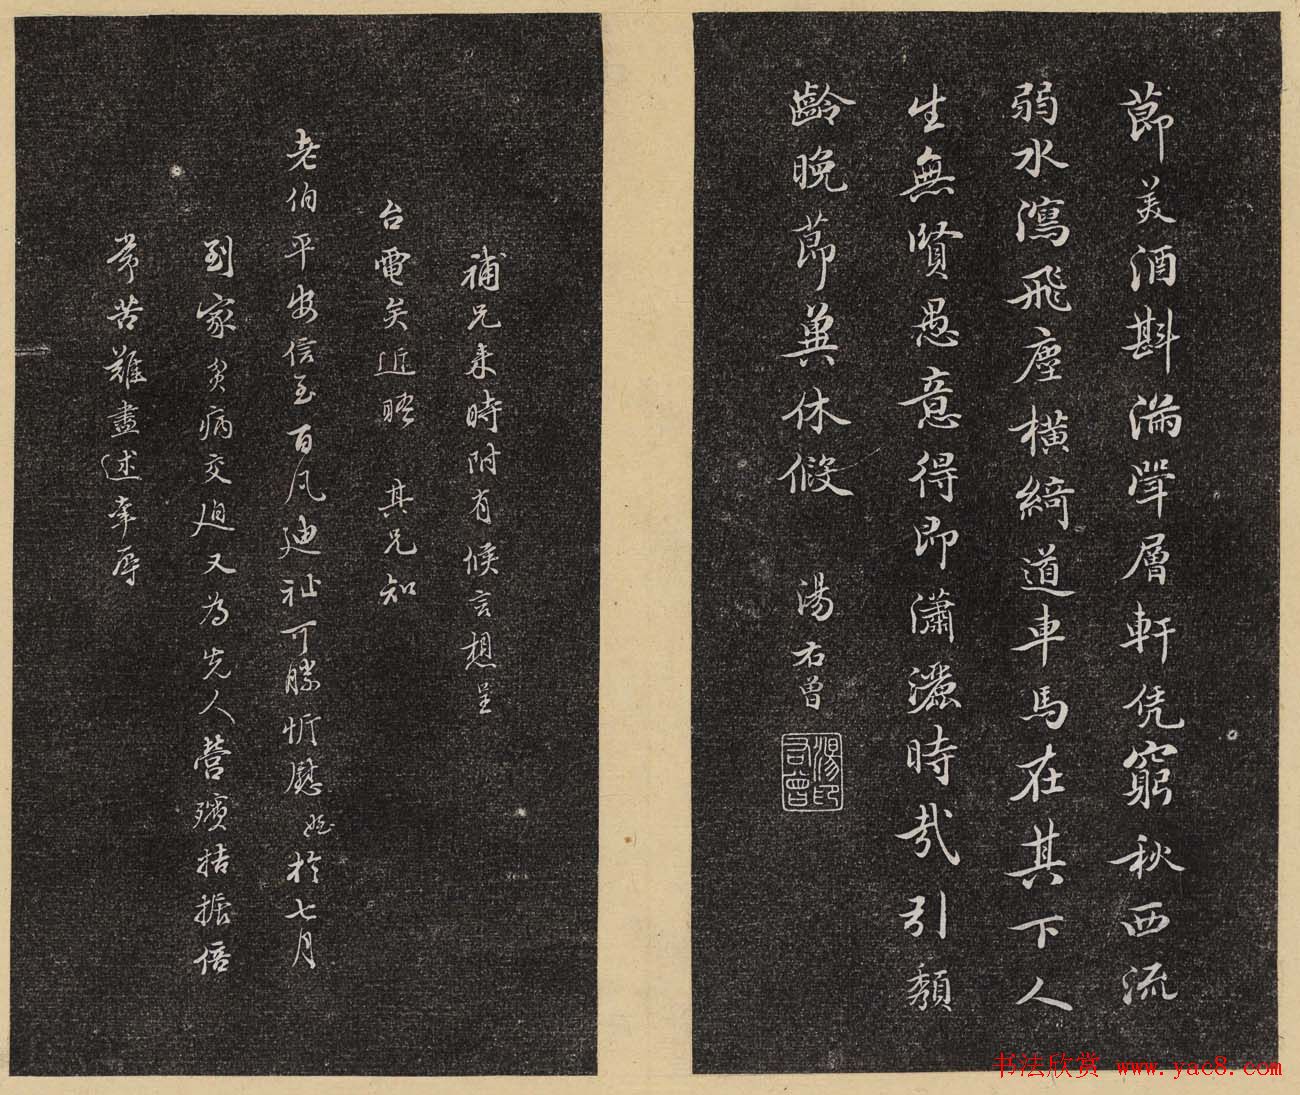 節美酒斟滿斝層軒凭窮秋西流
弱水瀉飛塵橫綺道車馬在其下人
生無賢愚意得即瀟灑時哉引頹
齡晚節莫休假
湯右曾
湯印右曾
補兄來時附有候言想呈
台電矣近晤 其兄知
老伯平安信至百凡迪祉可勝忻慰 於七月
到家貧病交迫又為先人營殯拮据倍
常苦難盡述幸辱
书法欣赏 www.yac8.com